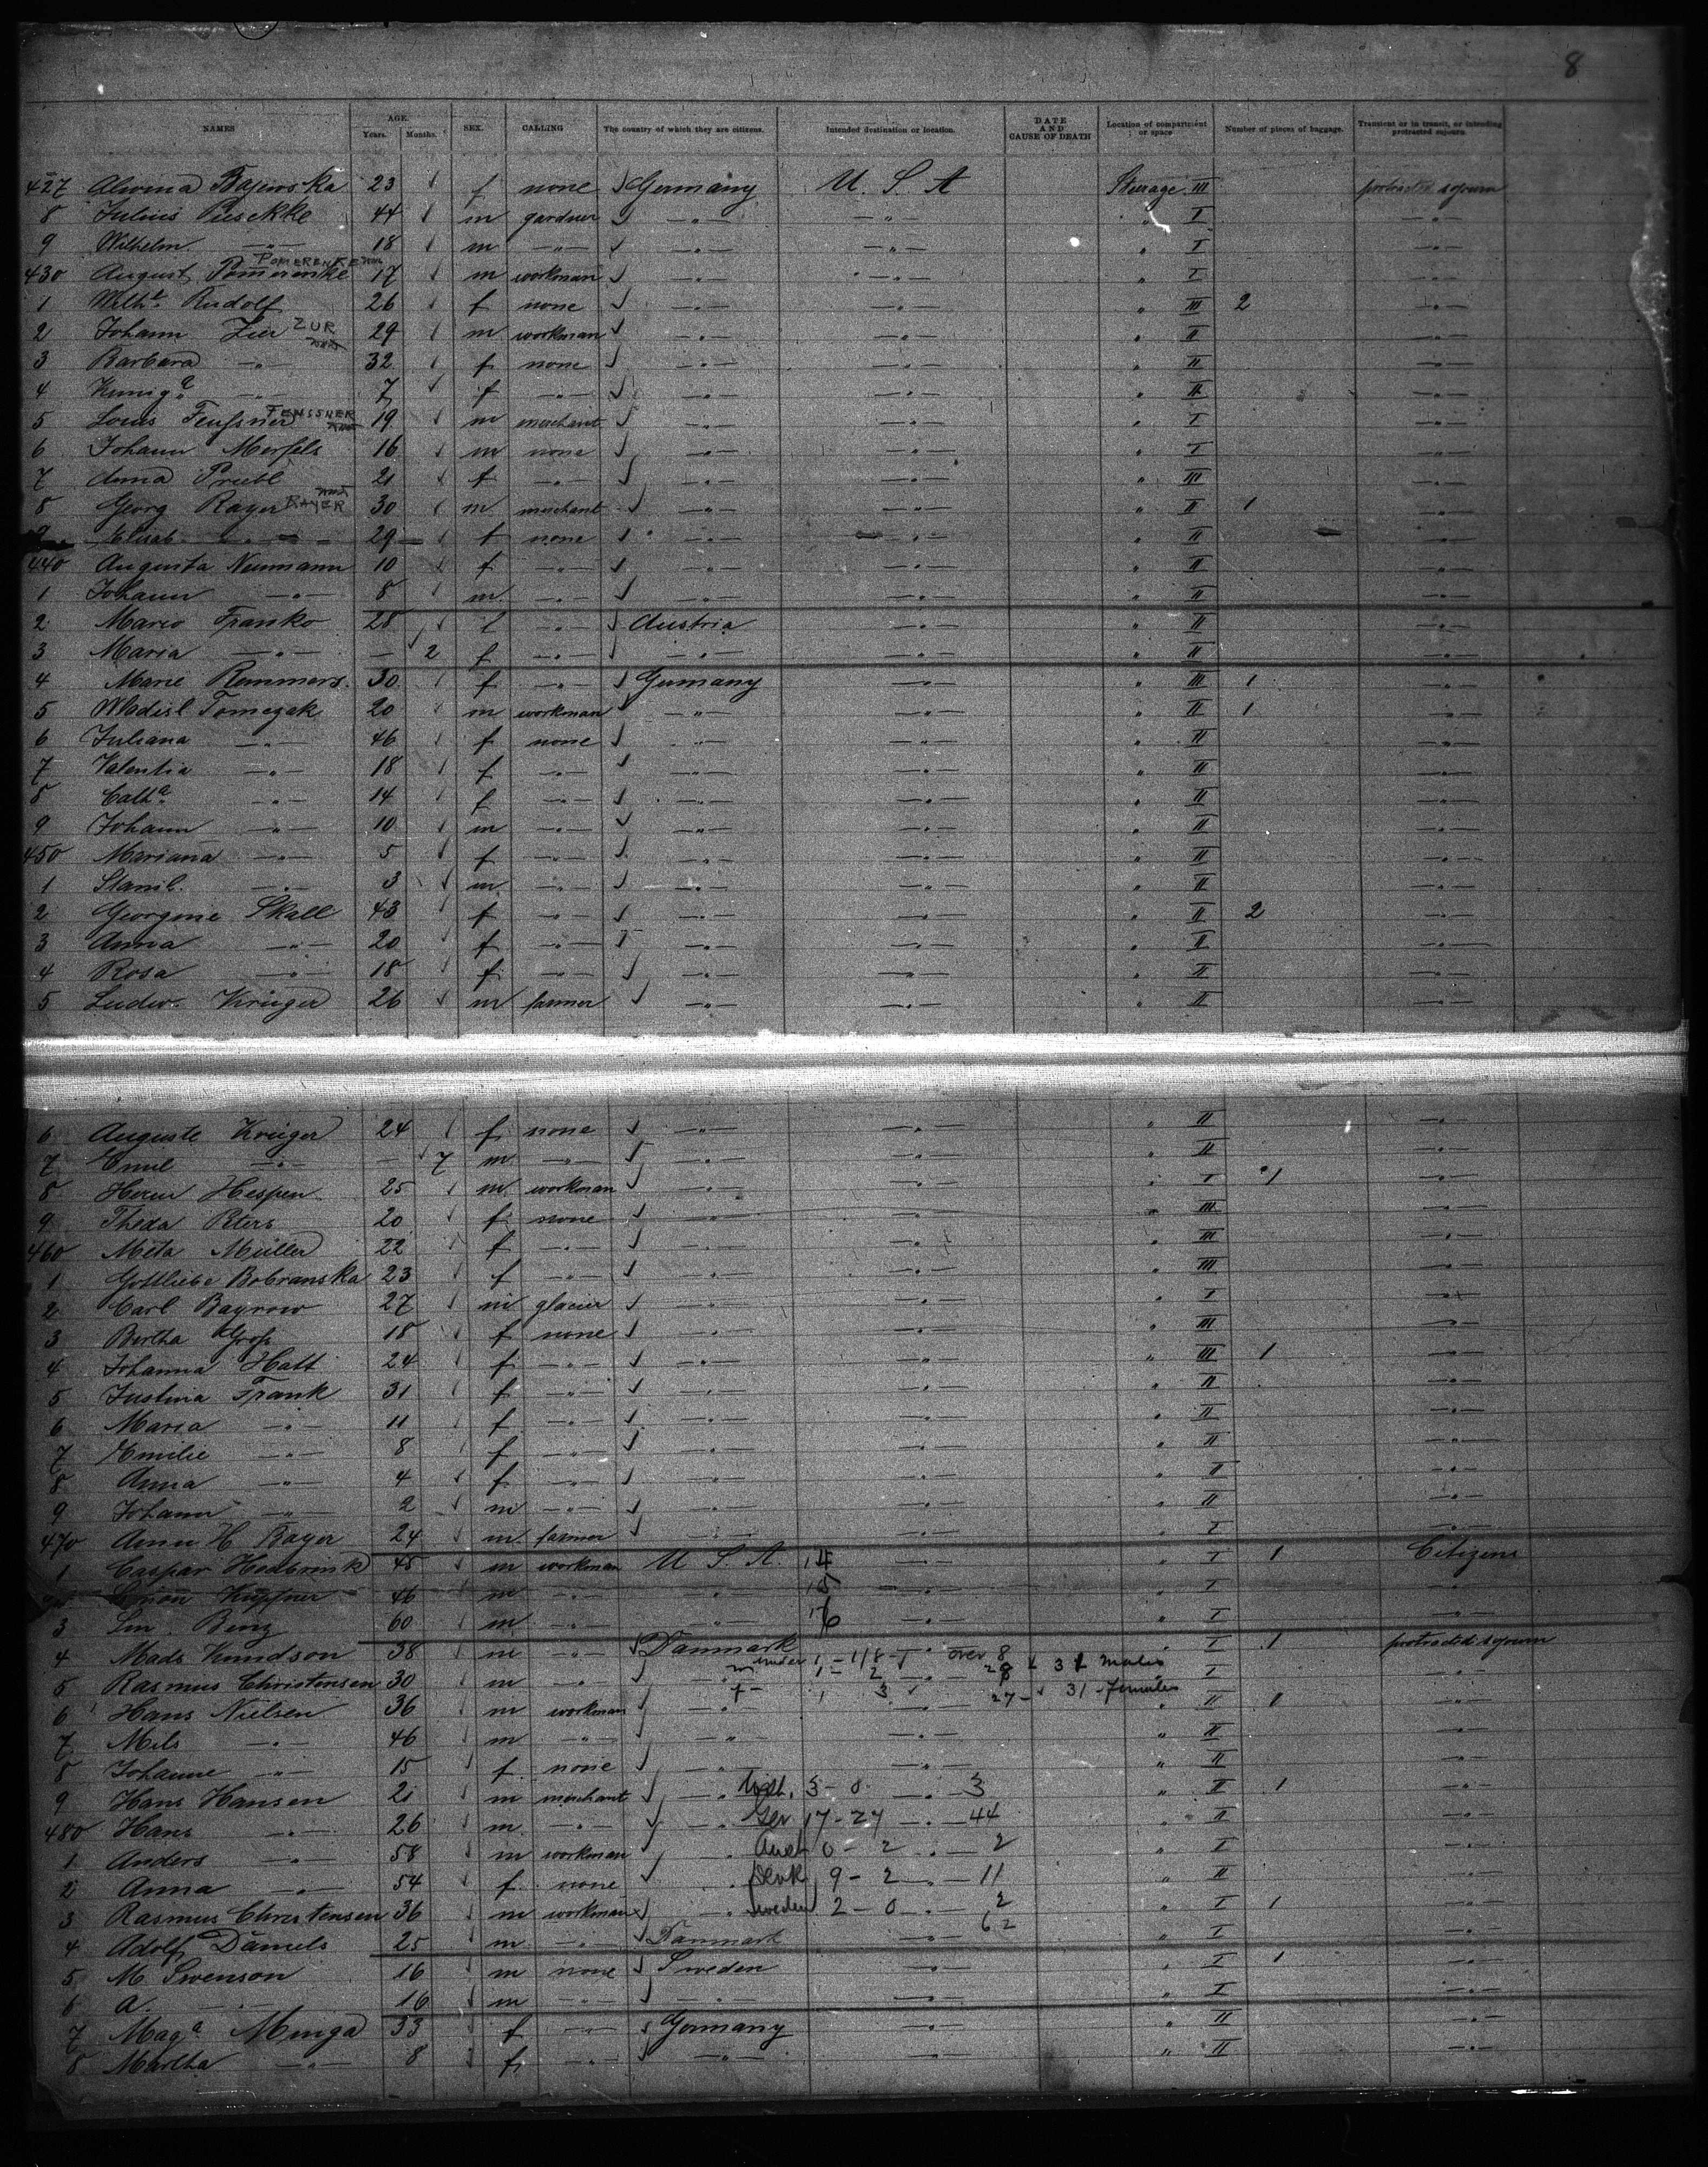 8
NAMES AGE. Years. Months. SEX. CALLING The country of which they are citizens. Intended destination or location. DATE AND CAUSE OF DEATH Location of compartment or space Number of pieces of baggage. Transient or in transit, or intending protracted sojourn.
427 Alwina Bajewska 23 f none Germany U. S. A Steerage III protracted sojourn
8 Julius 44 m gardner —"— —"— " I —"—
9 Wilhelm —"— 18 m —"— —"— —"— " I —"—
POMERENKE
430 August Pomerenke 17 m workman —"— —"— " I —"—
1 Wilhe Rudolf 26 f none —"— —"— " III 2 —"—
2 Johann Zur ZUR 29 m workman —"— —"— " II —"—
3 Barbara —"— 32 f none —"— —"— " II —"—
4 Kunige —"— 7 f —"— —"— —"— " II —"—
5 Louis Feussner FEUSSNER 19 m merchant —"— —"— " I —"—
6 Johann Merfels 16 m none —"— —"— " I —"—
7 Anna Priebl 21 f —"— —"— —"— " III —"—
8 Georg Bayer BAYER 30 m merchant —"— —"— " II 1 —"—
9 Elisab —"— 29 f none —"— —"— " II —"—
440 Augusta Neumann 10 f —"— —"— —"— " II —"—
1 Johann —"— 8 m —"— —"— —"— " II —"—
2 Franko 28 f —"— Austria —"— " II —"—
3 Maria —"— — 2 f —"— —"— —"— " II —"—
4 Marie Remmers 30 f —"— Germany —"— " III 1 —"—
5 Wladisl Tomczak 20 m workman —"— —"— " II 1 —"—
6 Juliana —"— 46 f none —"— —"— " II —"—
7 Valentia —"— 18 f —"— —"— —"— " II —"—
8 Catha —"— 14 f —"— —"— —"— " II —"—
9 Johann —"— 10 m —"— —"— —"— " II —"—
450 Mariana —"— 5 f —"— —"— —"— " II —"—
1 Stanil. —"— 3 m —"— —"— —"— " II —"—
2 Georgine Skall 43 f —"— —"— —"— " II 2 —"—
3 Anna —"— 20 f —"— —"— —"— " II —"—
4 Rosa —"— 18 f —"— —"— —"— " II —"—
5 Ludw. Krieger 26 m farmer —"— —"— " II —"—
6 Auguste Krieger 24 f none —"— —"— " II —"—
7 Emil —"— — 7 m —"— —"— —"— " II —"—
8 Herm Hespen 25 m workman —"— —"— " I 1 —"—
9 Theda Peters 20 f none —"— —"— " III —"—
460 Meta Müller 22 f —"— —"— —"— " III —"—
1 Gottliebe Bobranska 23 f —"— —"— —"— " III —"—
2 Carl Bayrow 27 m glacier —"— —"— " I —"—
3 Bertha Gross 18 f none —"— —"— " III —"—
4 Johanna Hatt 24 f —"— —"— —"— " III 1 —"—
5 Justina Frank 31 f —"— —"— —"— " II —"—
6 Maria —"— 11 f —"— —"— —"— " II —"—
7 Emilie —"— 8 f —"— —"— —"— " II —"—
8 Anna —"— 4 f —"— —"— —"— " II —"—
9 Johann —"— 2 m —"— —"— —"— " II —"—
470 H Bayer 24 m farmer —"— —"— " I —"—
1 Caspar Hedbrink 45 m workman U S A 14 —"— " I 1 Citizens
Simon Küffner 46 m —"— " 15 —"— " I
3 Benz 60 m —"— —"— 16 —"— " I —"—
4 Mads Knudson 38 m —"— Danmark —"— " I 1 protracted sojourn
under 1 - 1/8 - over 8
5 Rasmus Christensen 30 m —"— m 1 - 2 28 31 males I —"—
f - 1 3 27 - 31 - females
6 Hans Nielsen 36 m workman " II 1 —"—
7 Nils —"— 46 m —"— —"— —"— " II —"—
8 Johanne —"— 15 f none —"— —"— " II —"—
9 Hans Hansen 21 m merchant —"— 3 - 0 3 " II 1 —"—
480 Hans —"— 26 m —"— —"— Ger 17 - 27 —"— 44 " II —"—
1 Anders —"— 58 m workman " Aust 0 - 2 2 " I —"—
2 Anna —"— 54 f none " Denk 9 - 2 —"— 11 " II —"—
3 Rasmus Christensen 36 m workman " Sweden 2 - 0 2 " I 1 —"—
62
4 Adolf Daniels 25 m —"— Danmark —"— " I —"—
5 M Swenson 16 m none Sweden —"— " I 1 —"—
6 A. —"— 16 m —"— —"— —"— " I —"—
7 Maga Minga 33 f —"— Germany —"— " II —"—
8 Martha —"— 8 f —"— —"— —"— " II —"—